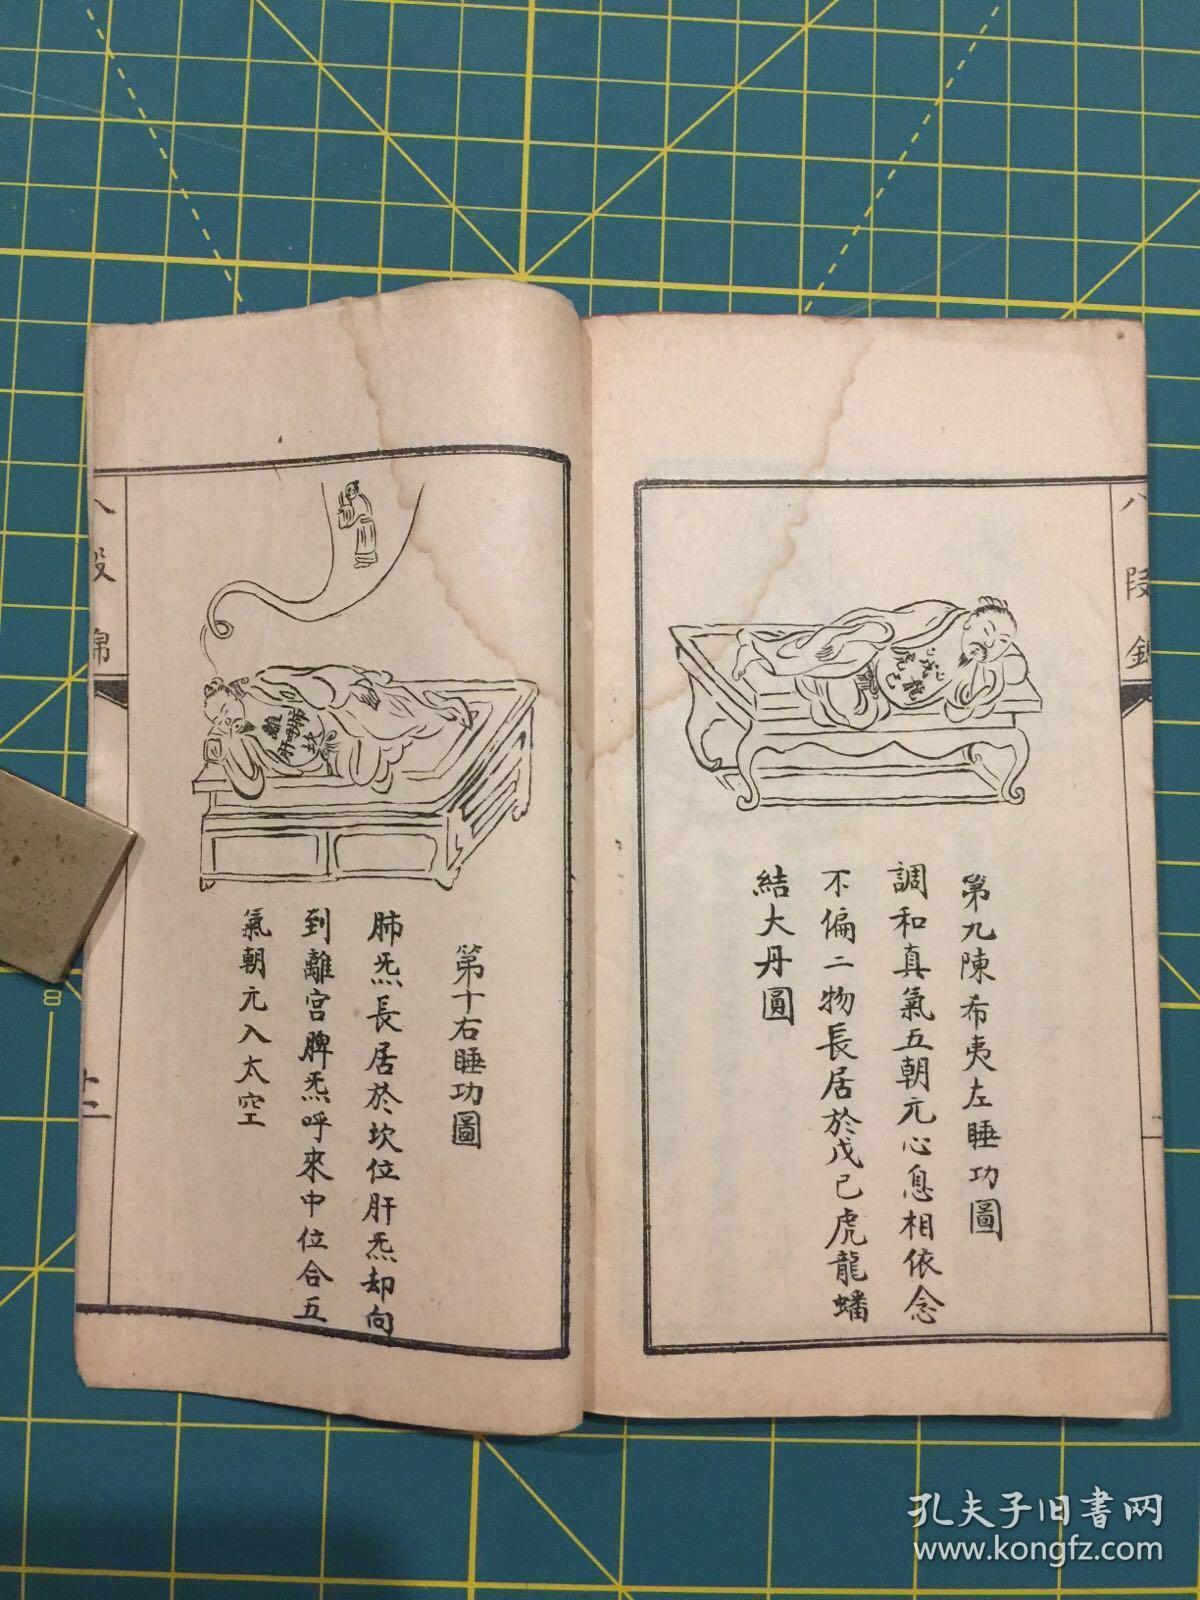 八段錦
第九陳希夷左睡功圖
調和真氣五朝元心息相依念
不偏二物長居於戊己虎龍蟠
結大丹圓
第十右睡功圖
肺炁長居於坎位肝炁却向
到離宮脾炁呼來中位合五
氣朝元入太空
八段錦
十二
8
孔夫子旧书网
www.kongfz.com